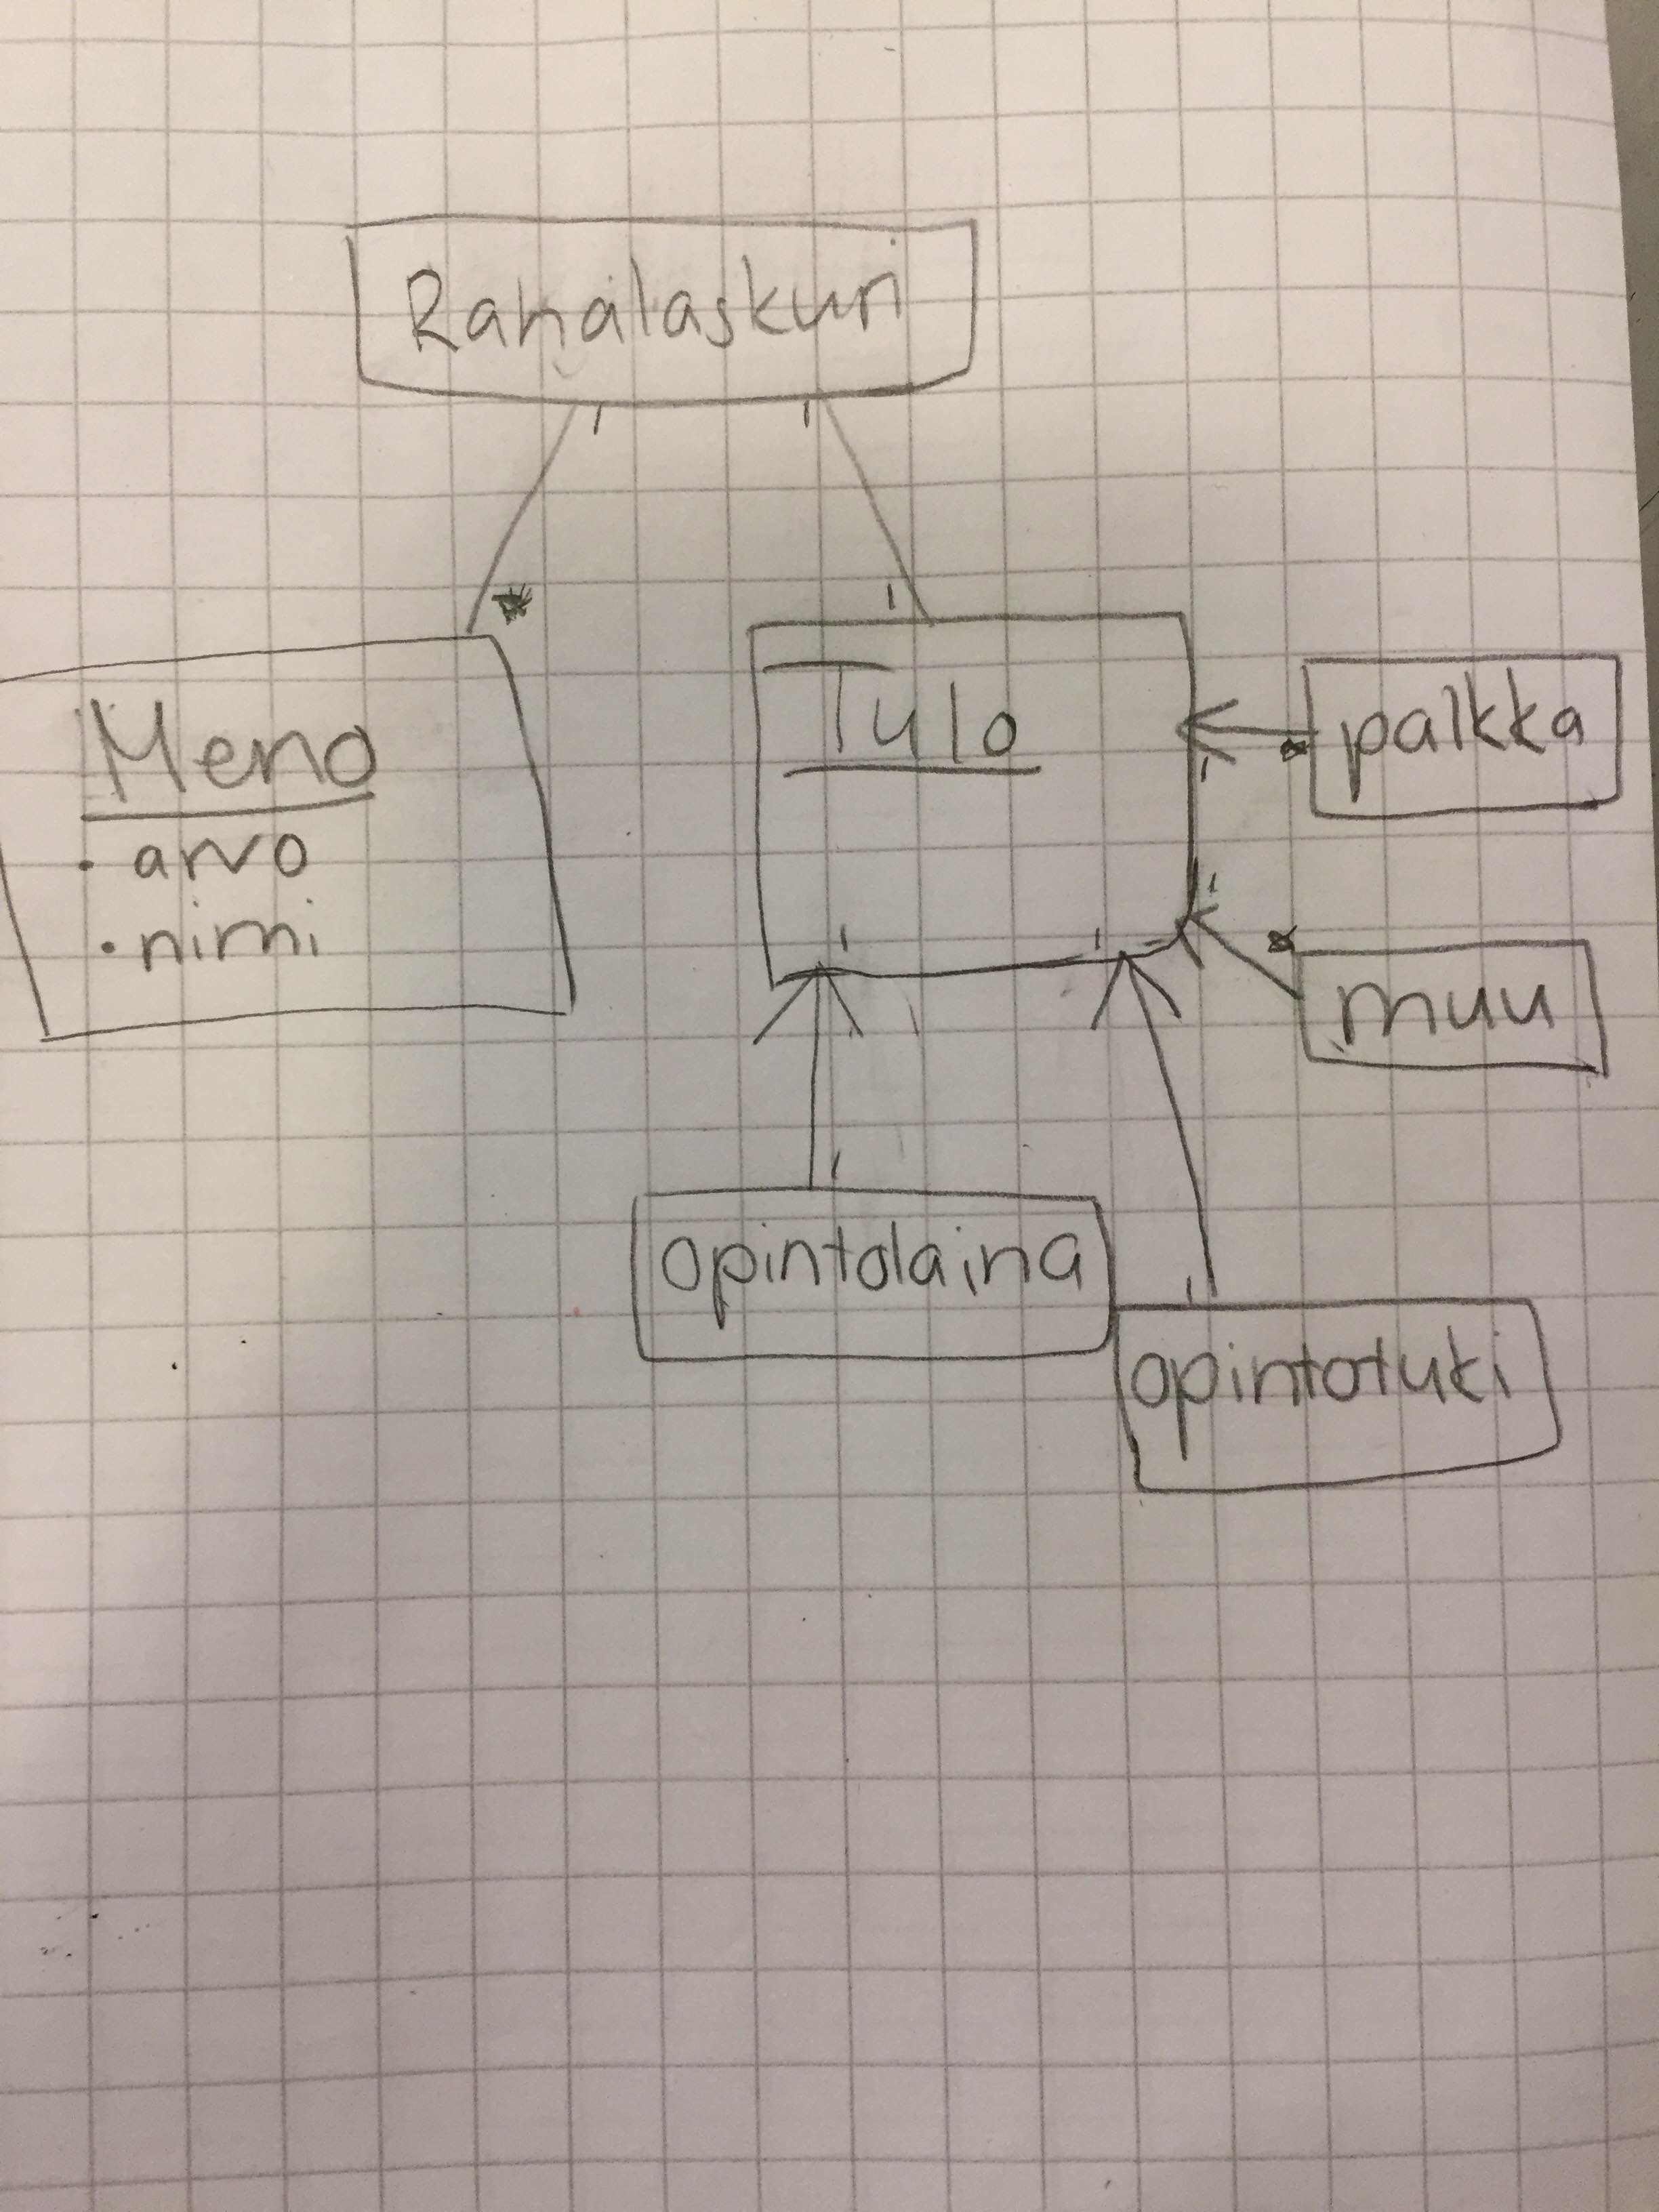 Rahalaskuri
1 1
* 1
Meno
• arvo
• nimi
Tulo
palkka
* 1
1
* muu
1 1
1
opintolaina
1
opintotuki